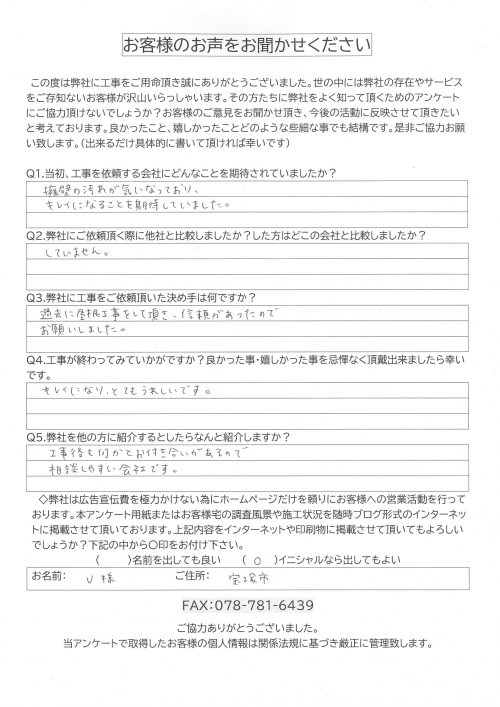 お客様のお声をお聞かせください
この度は弊社に工事をご用命頂き誠にありがとうございました。世の中には弊社の存在やサービス
をご存知ないお客様が沢山いらっしゃいます。その方たちに弊社をよく知って頂くためのアンケート
にご協力頂けないでしょうか？お客様のご意見をお聞かせ頂き、今後の活動に反映させて頂きたい
と考えております。良かったこと、嬉しかったことどのような些細な事でも結構です。是非ご協力お願
い致します。（出来るだけ具体的に書いて頂ければ幸いです）
Q1.当初、工事を依頼する会社にどんなことを期待されていましたか？
擁壁の汚れが気になっており、
キレイになることを期待していました。
Q2.弊社にご依頼頂く際に他社と比較しましたか？した方はどこの会社と比較しましたか？
していません。
Q3.弊社に工事をご依頼頂いた決め手は何ですか？
過去に屋根工事をして頂き、信頼があったので
お願いしました。
Q4.工事が終わってみていかがですか？良かった事・嬉しかった事を忌憚なく頂戴出来ましたら幸い
です。
キレイになり、とてもうれしいです。
Q5.弊社を他の方に紹介するとしたらなんと紹介しますか？
工事後も何かとお付き合いがあるので
相談しやすい会社です。
◇弊社は広告宣伝費を極力かけない為にホームページだけを頼りにお客様への営業活動を行って
おります。本アンケート用紙またはお客様宅の調査風景や施工状況を随時ブログ形式のインターネッ
トに掲載させて頂いております。上記内容をインターネットや印刷物に掲載させて頂いてもよろしい
でしょうか？下記の中から〇印をお付け下さい。
（　　）名前を出しても良い　（ ○ ）イニシャルなら出してもよい
お名前： U 様　ご住所： 宝塚市
FAX：078-781-6439
ご協力ありがとうございました。
当アンケートで取得したお客様の個人情報は関係法規に基づき厳正に管理致します。